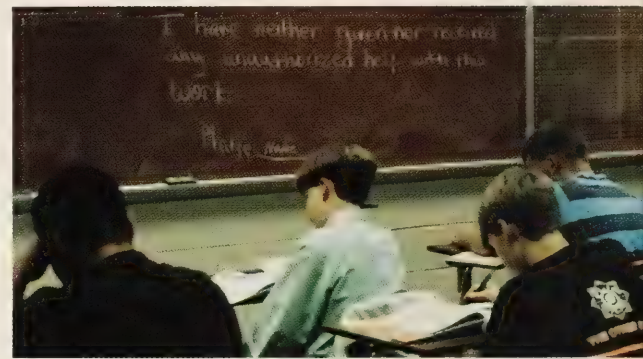 I have neither given nor received
any unauthorized help with this
work.